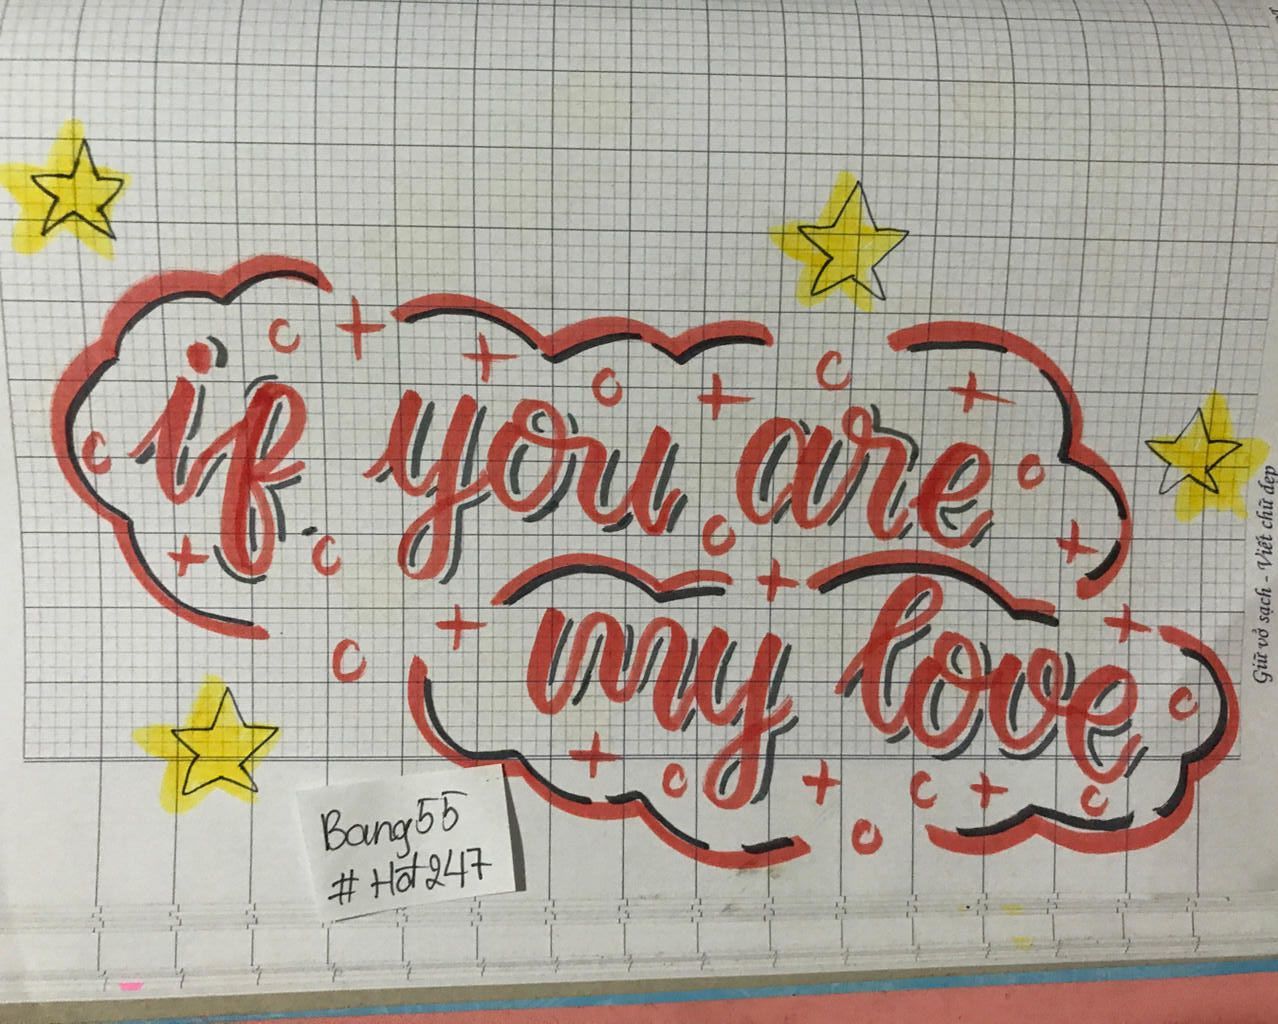 if you are
my love
Bang55
#Hot247
Giữ vở sạch - Viết chữ đẹp